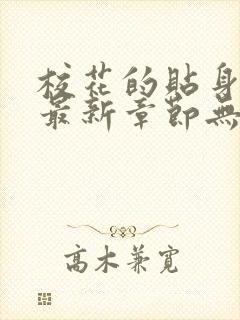 校花的貼身
最新章節無
高木兼寬